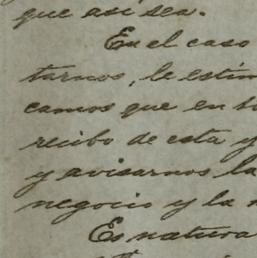 que así sea.
En el caso
tarnos, le estim
camos que en su
recibo de esta y
y avisarnos la
negocio y la
Es natura